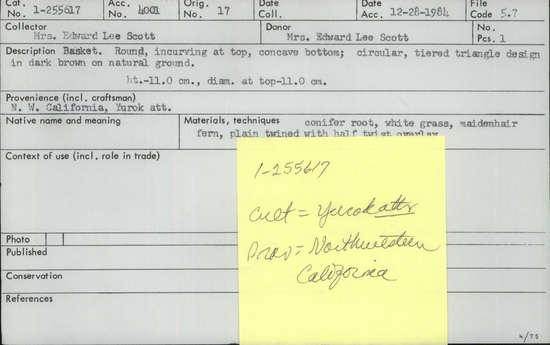 Cat. No. 1-255617 Acc. No. 4001 Orig. No. 17 Date Coll. Date Acc. 12-28-1984 File Code 5.7
Collector Mrs. Edward Lee Scott Donor Mrs. Edward Lee Scott No. Pcs. 1
Description Basket. Round, incurving at top, concave bottom; circular, tiered triangle design
in dark brown on natural ground.
ht.-11.0 cm., diam. at top-11.0 cm.
Provenience (incl. craftsman)
N. W. California, Yurok att.
Native name and meaning Materials, techniques conifer root, white grass, maidenhair
fern, plain twined with half twist overlay
Context of use (incl. role in trade)
1-255617
Cult = Yurok attr
Prov = Northwestern
California
Photo
Published
Conservation
References
4/75